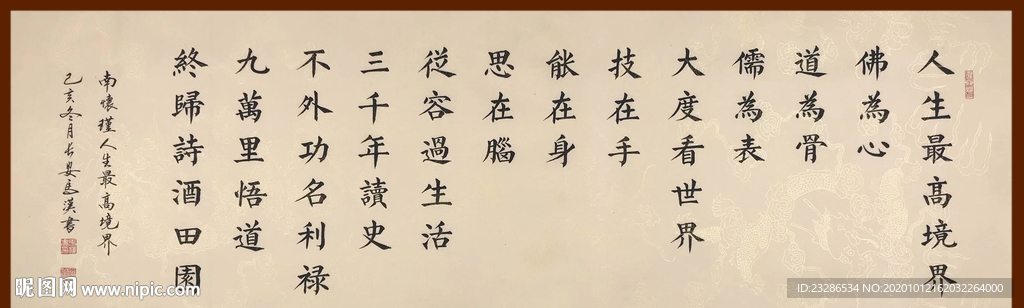 人生最高境界
佛為心
道為骨
儒為表
大度看世界
技在手
能在身
思在腦
從容過生活
三千年讀史
不外功名利禄
九萬里悟道
終歸詩酒田園
南懷瑾人生最高境界
己亥冬月长安馬漢書
昵图网 www.nipic.com
ID:23286534 NO:20201012162032264000